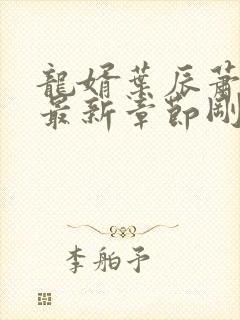 龍婿葉辰蕭
最新章節剛
李舶予